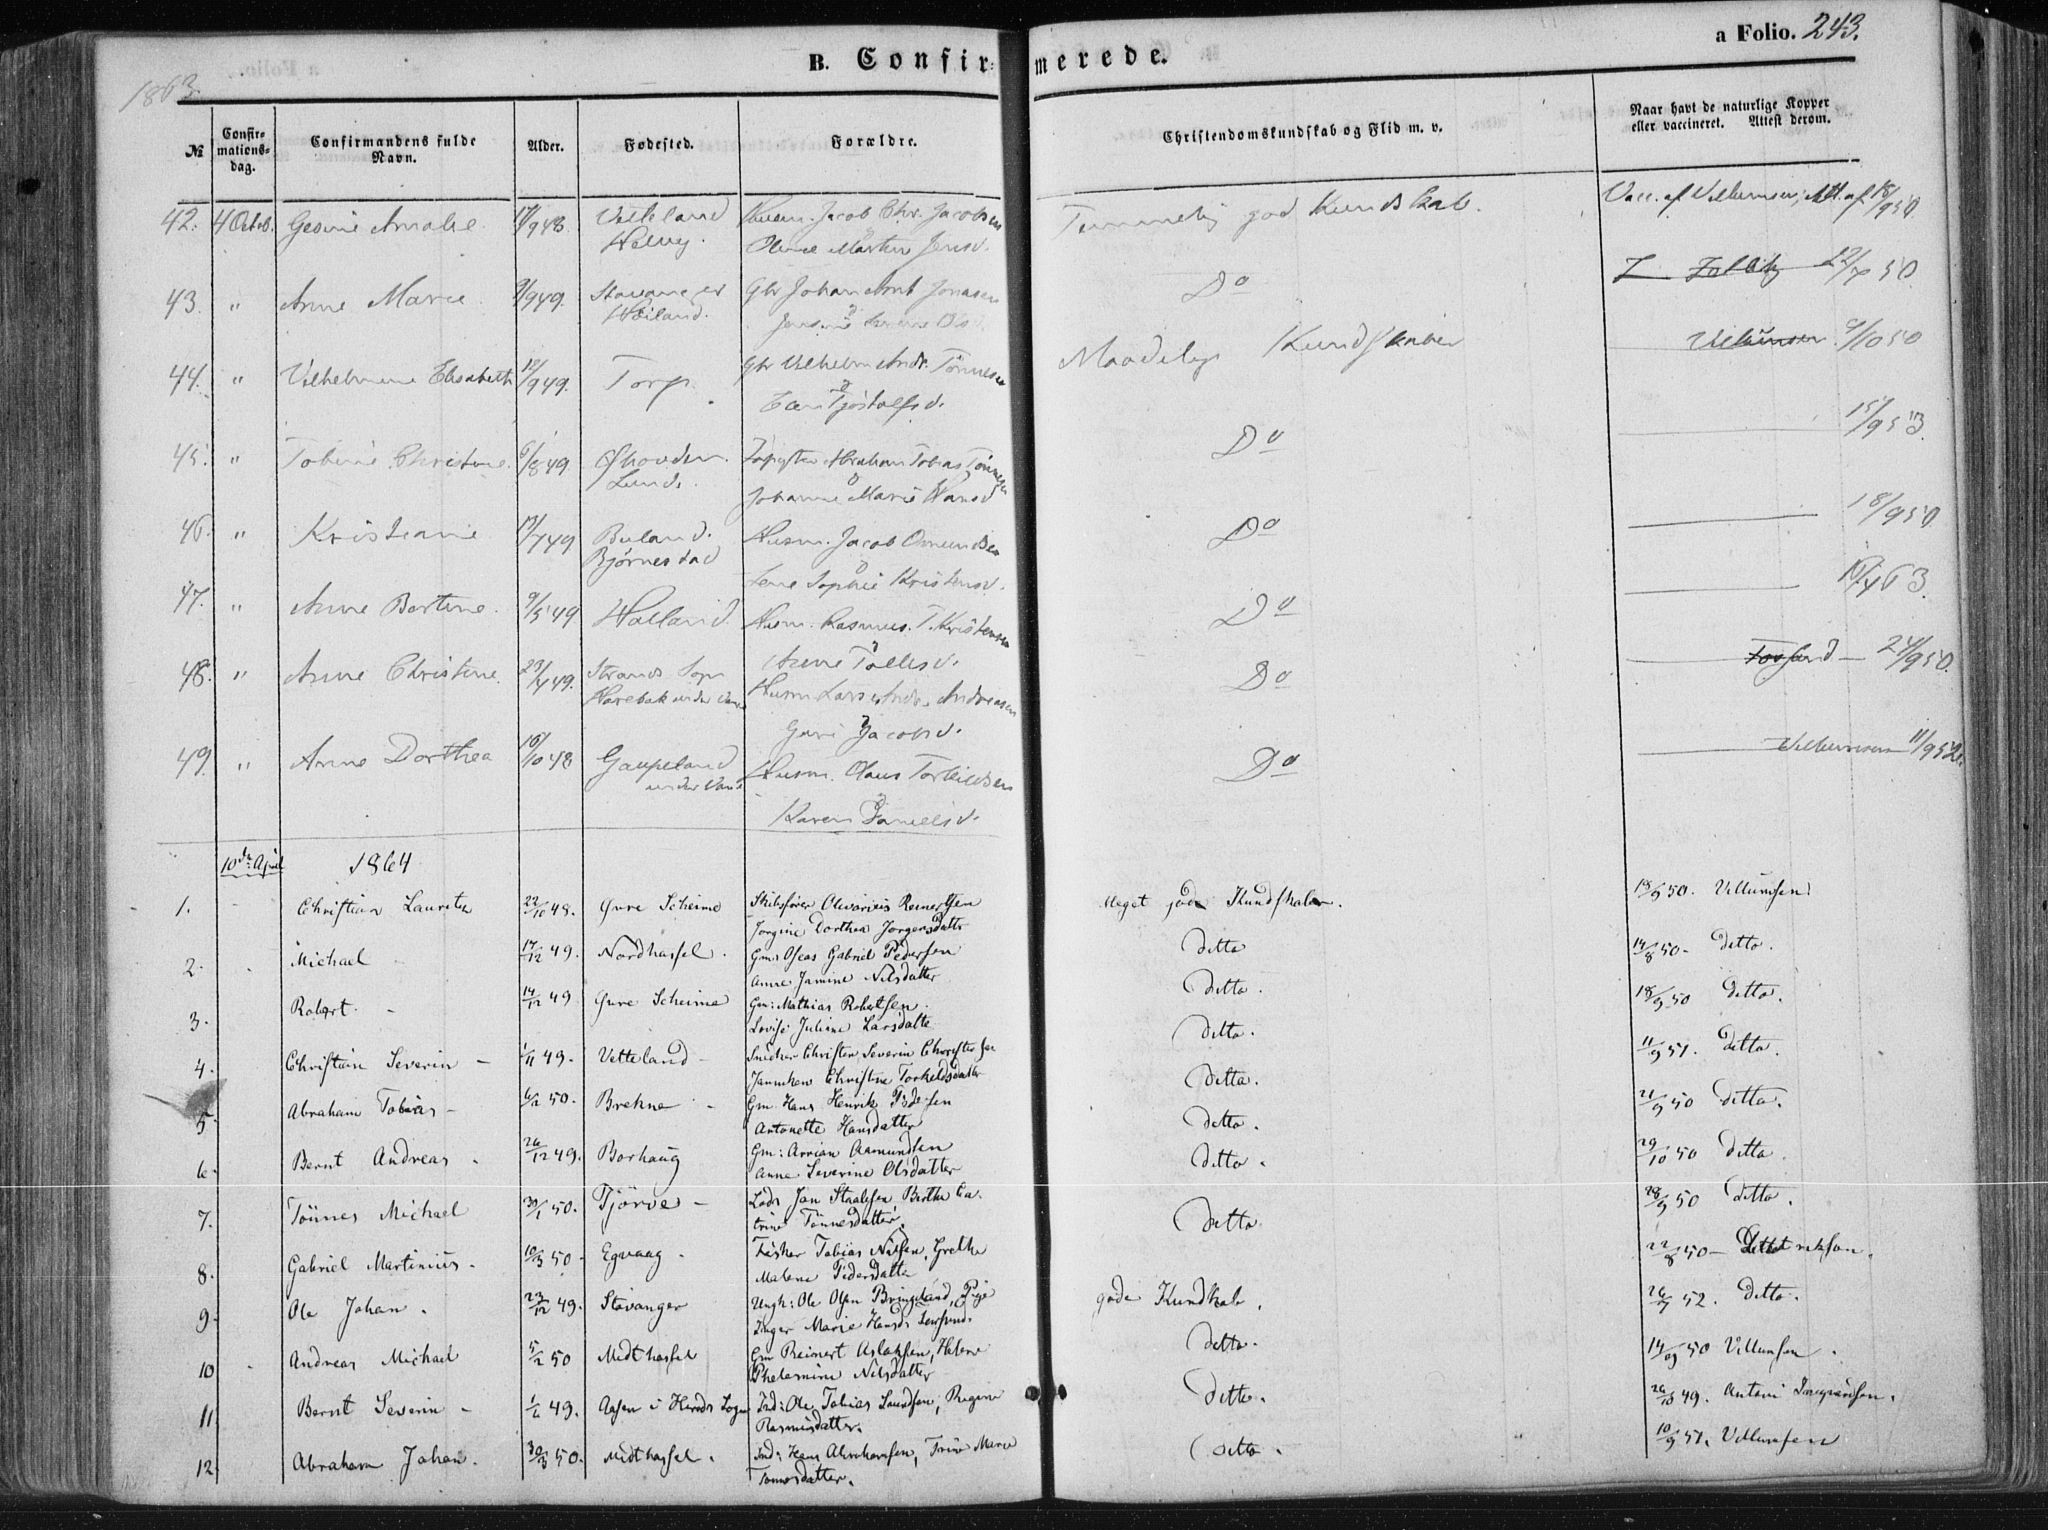 B. Confirmerede.
a Folio. 243.
1863.
№
Confirmations-dag.
Confirmandens fulde Navn.
Alder.
Fødested.
Forældre.
Christendomskundskab og Flid m. v.
Naar havt de naturlige Kopper eller vaccineret. Attest derom.
42. 4 Octob. Gesine Amalie 948. Vetteland Husm. Jacob Chr. Jacobsen Temmelig god Kundskab. Vacc. af Villumsen, Att. af 18/9 50
Olene Martine Jensd.
43. " Anne Marie 9/9 49. Stavanger Gbr Johan Jonasen Do
Høiland.
44. " Vilhelmine Elisabeth 12/9 49. Torp. Gbr Vilhelm Andr. Tönnesen Maadelige Kundskaber 9/10 50
45. " Tobine Christine. 6/8 49 Skouden Abraham Tobias Tönnesen Do 15/9 53.
Lunde. Johanne Marie Hansd
46. " Kristiane 13/7 49 Buland. Husm. Jacob Omundsen Do 18/9 50
Bjørnestad Lene Sophie Kristensd.
47. " Anne Bertine. 9/5 49 Halland. Husm. Rasmus T. Kristensen Do 10/4 63.
Anne Tollesd.
48. " Anne Christine. 23/4 49. Strands Sogn Husm Lars Andr. Andreasen Do Forsand 24/9 50.
Harebak under Vans Guri Jacobsd.
49. " Anne Dorthea 16/10 48 Gaupeland Husm. Olaus Torkildsen Do Villumsen 11/9 52.
under Vans Karen Danielsd.
10de April 1864
1. Christian Lauritz 22/10 49. Øvre Scheime Skibsfører Olivarius Reinertsen Meget gode Kundskaber. 18/9 50. Villumsen
Jorgine Dorthea Jorgensdatter
2. Michael 17/12 49. Nordhassel. Gm: Oseas Gabriel Pedersen ditto 14/8 50 - ditto.
Anne Jamine Nilsdatter
3. Robert. 14/12 49 Øvre Scheime Gm: Mathias Robertsen. ditto. 18/9 50 ditto.
Lovise Juliane Larsdatte
4. Christian Severin - 1/11 49. Vetteland - Snedker Christen Severin Christensen ditto. 11/9 51. ditto.
Jannichen Christine Torkeldsdatter
5. Abraham Tobias - 6/2 50. Brekne - Gm Hans Henrik Pedersen ditto. 21/9 50 ditto.
Antonette Hansdatter
6. Bernt Andreas. 26/12 49. Borhaug Gm: Arrian Aamundsen ditto. 29/10 50 ditto.
Anne Severine Olsdatter
7. Tönnes Michael 30/1 50. Tjörve - Lods Jan Staalesen Berthe Ca- ditto. 28/9 50 ditto.
trine Tönnesdatter.
8. Gabriel Martinius. 10/3 50 - Egvaag. Fisker Tobias Nilsen, Grethe ditto 22/8 50 -
Malene Pedersdatter
9. Ole Johan. 23/12 49. Stavanger Ungk: Ole Olsen Bringeland, Pige gode Kundskab. 26/7 52. ditto.
Inger Marie Hansd.
10 Andreas Michael 5/2 50 Midthassel Gm Reinert Aslaksen, Helene ditto. 14/9 50 Villumsen.
Philamine Nilsdatter
11. Bernt Severin - 49. Aasen i Herads Sogn Ind: Ole Tobias Laurdsen, Regine ditto. 26/10 49. Antoni
Rasmusdatter.
12. Abraham Johan. 30/3 50. Midthassel. Ind: Hans Abrahamsen, Trine Marie ditto. 10/9 51. Villumsen
Tönnesdatter.